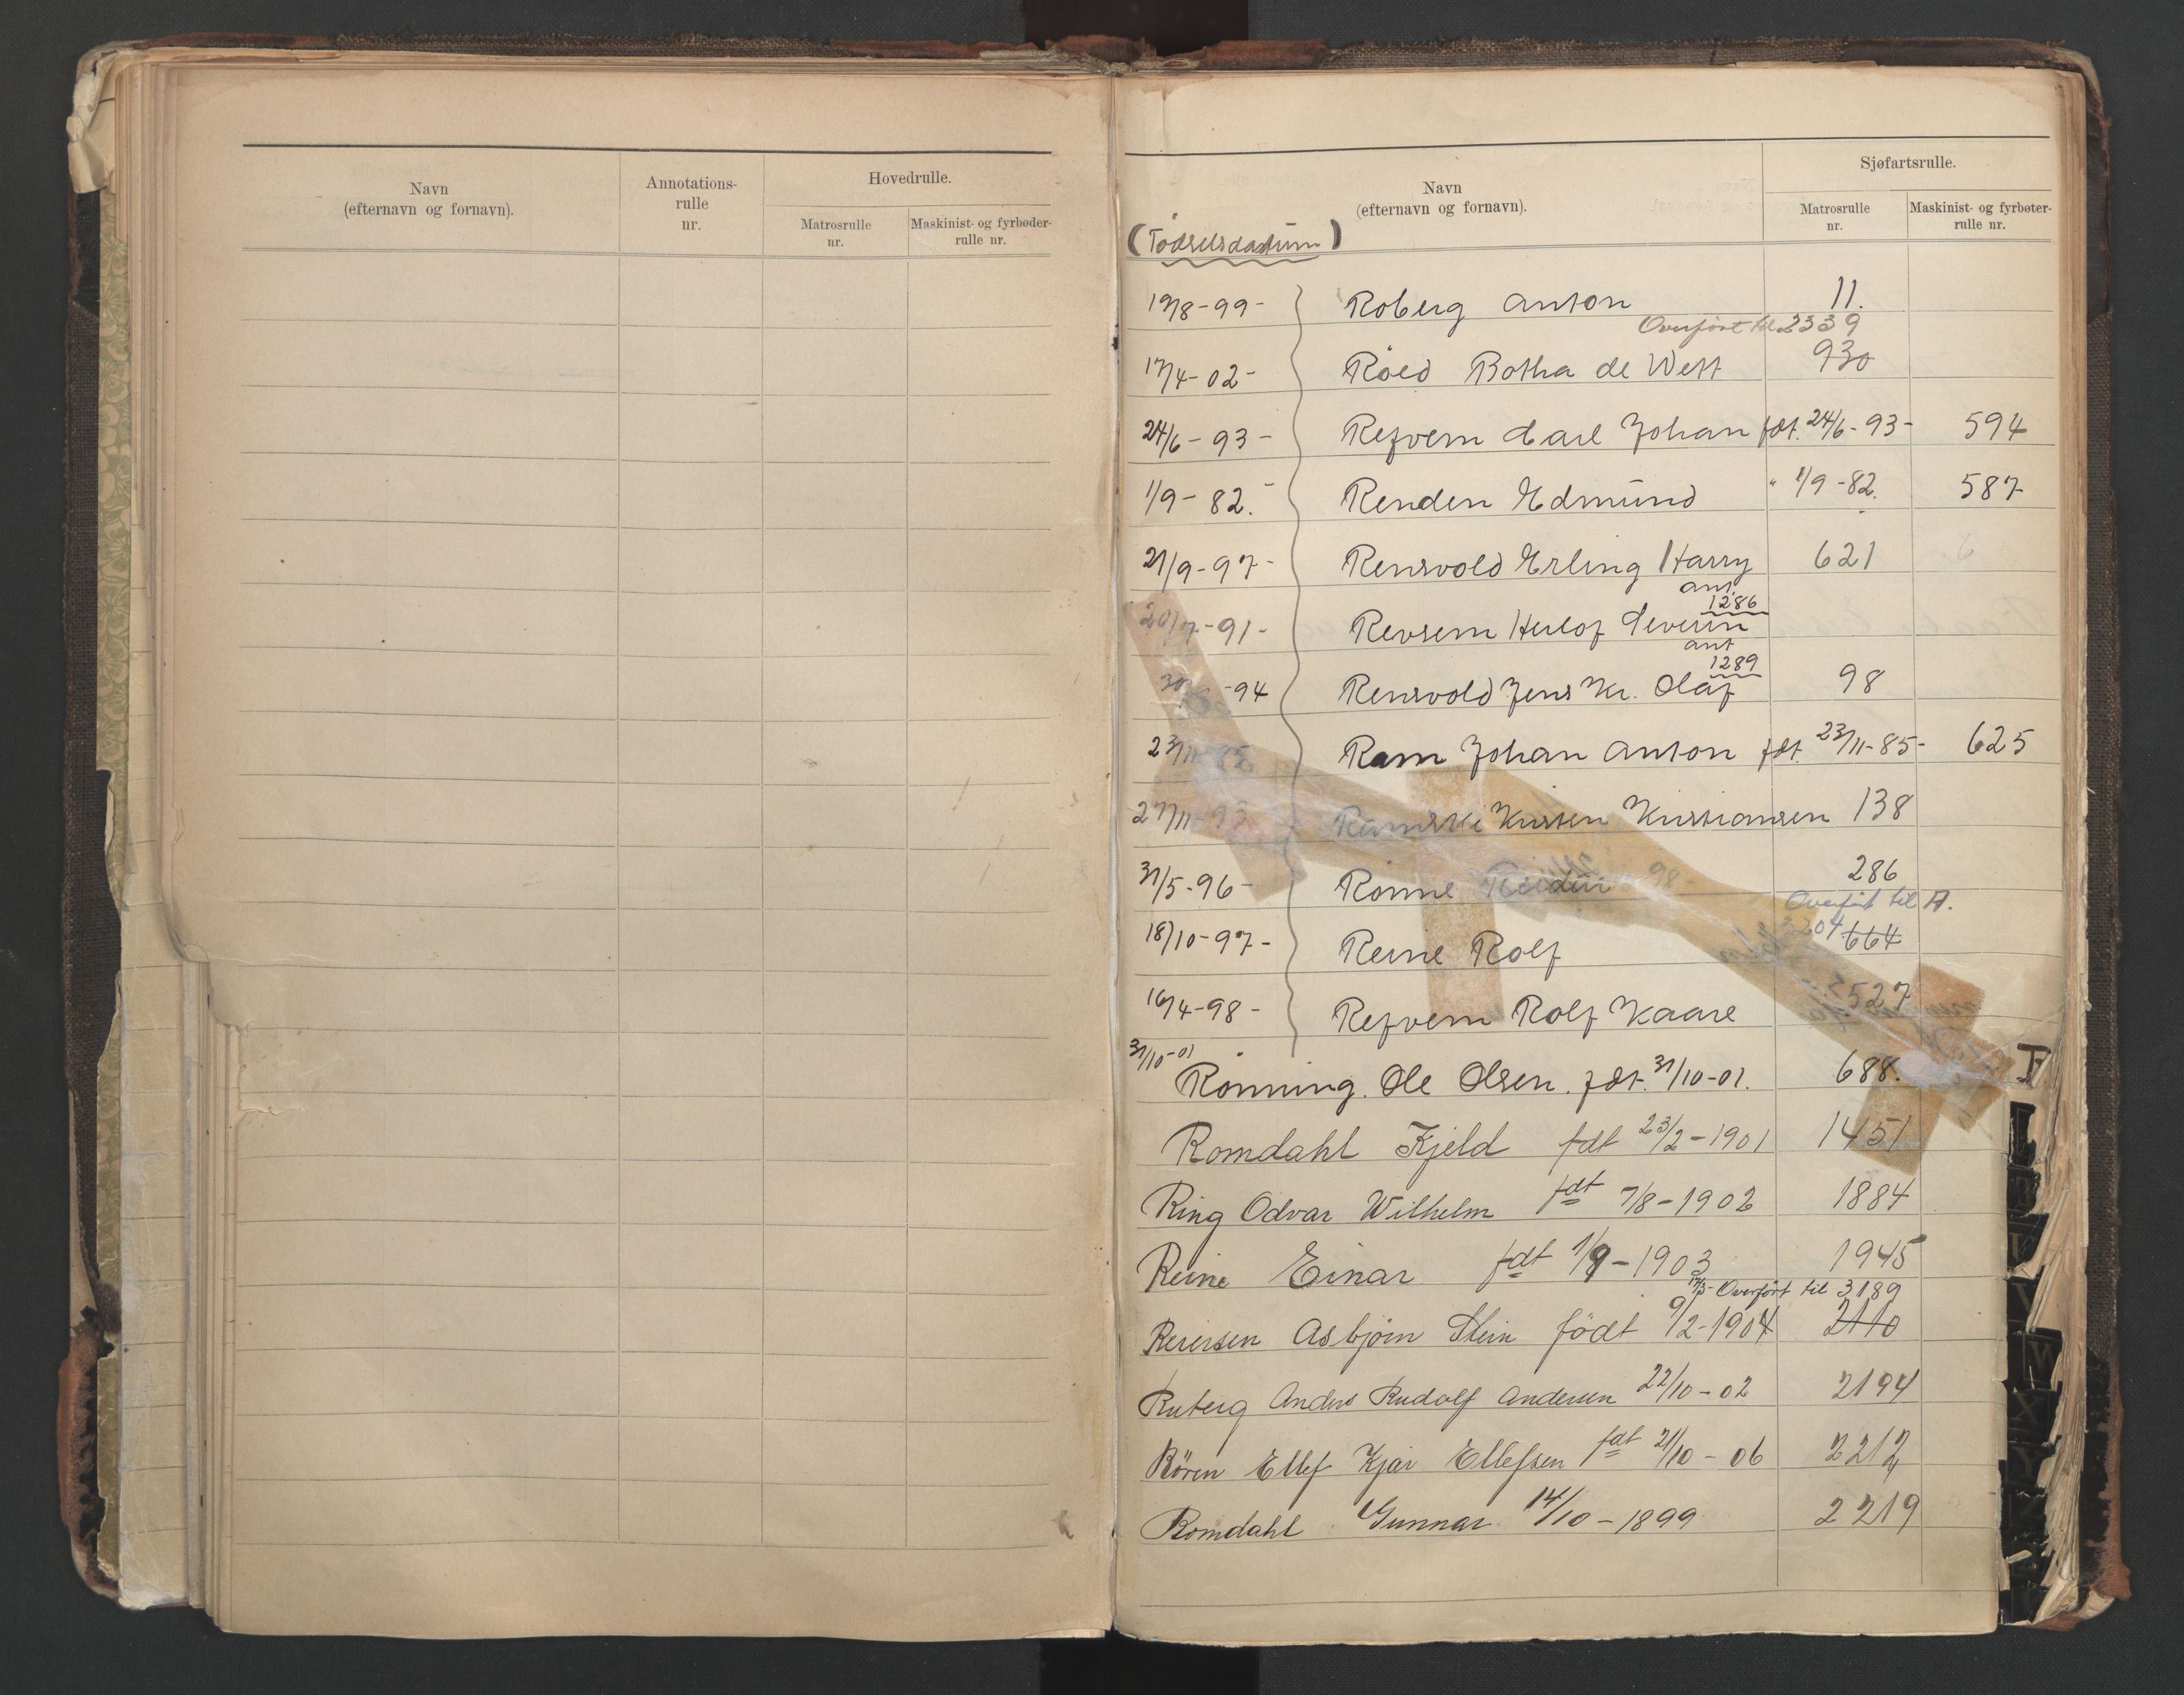 Navn
(efternavn og fornavn).
Annotations-
rulle
nr.
Hovedrulle.
Matrosrulle
nr.
Maskinist- og fyrbøder-
rulle nr.
Navn
(efternavn og fornavn).
Sjøfartsrulle.
Matrosrulle
nr.
Maskinist- og fyrbøter-
rulle nr.
(Födselsdatum)
19/8-99- Roberg Anton 11.
Overført til 2339
17/4-02- Röed Botha de Wett 930
24/6-93- Refvem Carl Johan fdt. 24/6-93- 594
1/9-82.- Renden Edmund " 1/9-82. 587
21/9-97- Rensvold Erling Harry 621
ant.
1286
20/7-91- Revsem Herlof Severin
ant
1289
-94 Rensvold Jens Kr. Olaf 98
23/11-85 Ram Johan Anton fdt. 23/11-85- 625
27/11-93 Kristen Kristiansen 138
31/5-96- Rönne Reidar 286
Overført til A.
18/10-97- Reine Rolf 2204 664
16/4-98- Refvem Rolf Kaare 527
31/10-01
Rönning. Ole Olsen. fdt. 31/10-01. 688.
Romdahl Kjeld fdt 23/2-1901 1451
Ring Odvar Wilhelm fdt 7/8-1902 1884
Reine Einar fdt 1/9-1903 1945
17/3- Overført til 3189
Reiersen Asbjörn Stein født 9/2-1904 2110
Ruberg Anders Rudolf Andersen 22/10-02 2194
Rören Ellef Kjær Ellefsen fdt 21/10-06 2212
Romdahl Gunnar 14/10-1899 2219